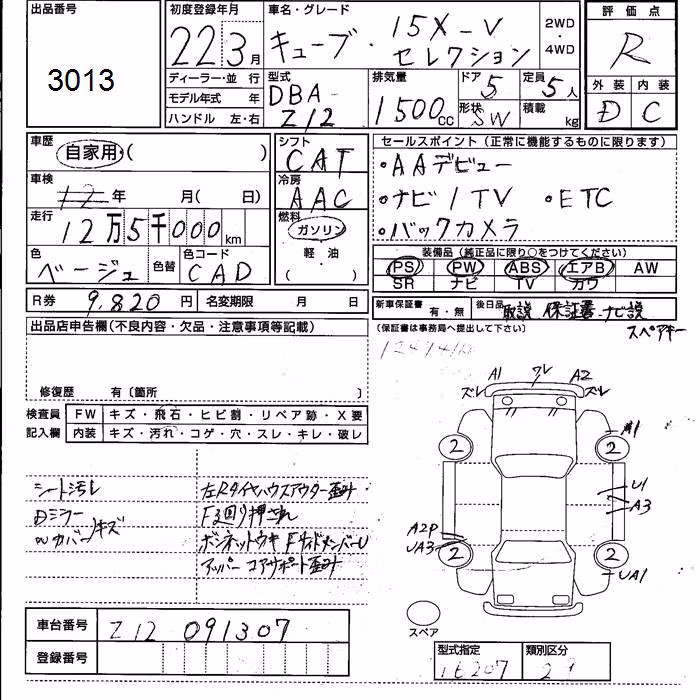 出品番号
3013
初度登録年月
22 3月
車名・グレード
キューブ・ 15X-V
セレクション
2WD
・
4WD
評価点
R
外装 内装
D C
ディーラー・並 行
モデル年式 年
ハンドル 左・右
型式
DBA-
Z12
排気量
1500cc
ドア
5
形状
SW
定員
5人
積載
kg
車歴
自家用・( )
車検
12年 月(日)
走行
12万5千000km
色
ベージュ
色替
色コード
CAD
シフト
CAT
冷房
AAC
燃料
ガソリン
軽・油
( ・ )
セールスポイント (正常に機能するものに限ります)
・AAデビュー
・ナビ/TV ・ETC
・バックカメラ
装備品 (純正品に限り○をつけてください)
PS PW ABS エアB AW
SR ナビ TV カワ
R券 9,820円 名変期限 月 日
新車保証書 有・無 後日品 取説 保証書 ナビ説
スペアキー
(保証書は事務局へ提出して下さい)
出品店申告欄(不良内容・欠品・注意事項等記載)
修復歴 有〔箇所 〕
検査員 FW キズ・飛石・ヒビ割・リペア跡・X要
記入欄 内装 キズ・汚れ・コゲ・穴・スレ・キレ・破レ
シート汚レ
Dミラー
Wカバー/キズ
左Rタイヤハウスアウター歪み
F廻り押され
ボンネットウキ FサイドメンバーU
アッパー コアサポート歪み
A1 ワレ A2
ズレ ズレ
2 2 A1
U1
A3
A2P
UA3 2 2
UA1
スペア
車台番号 Z12 091307
登録番号
型式指定 類別区分
16207